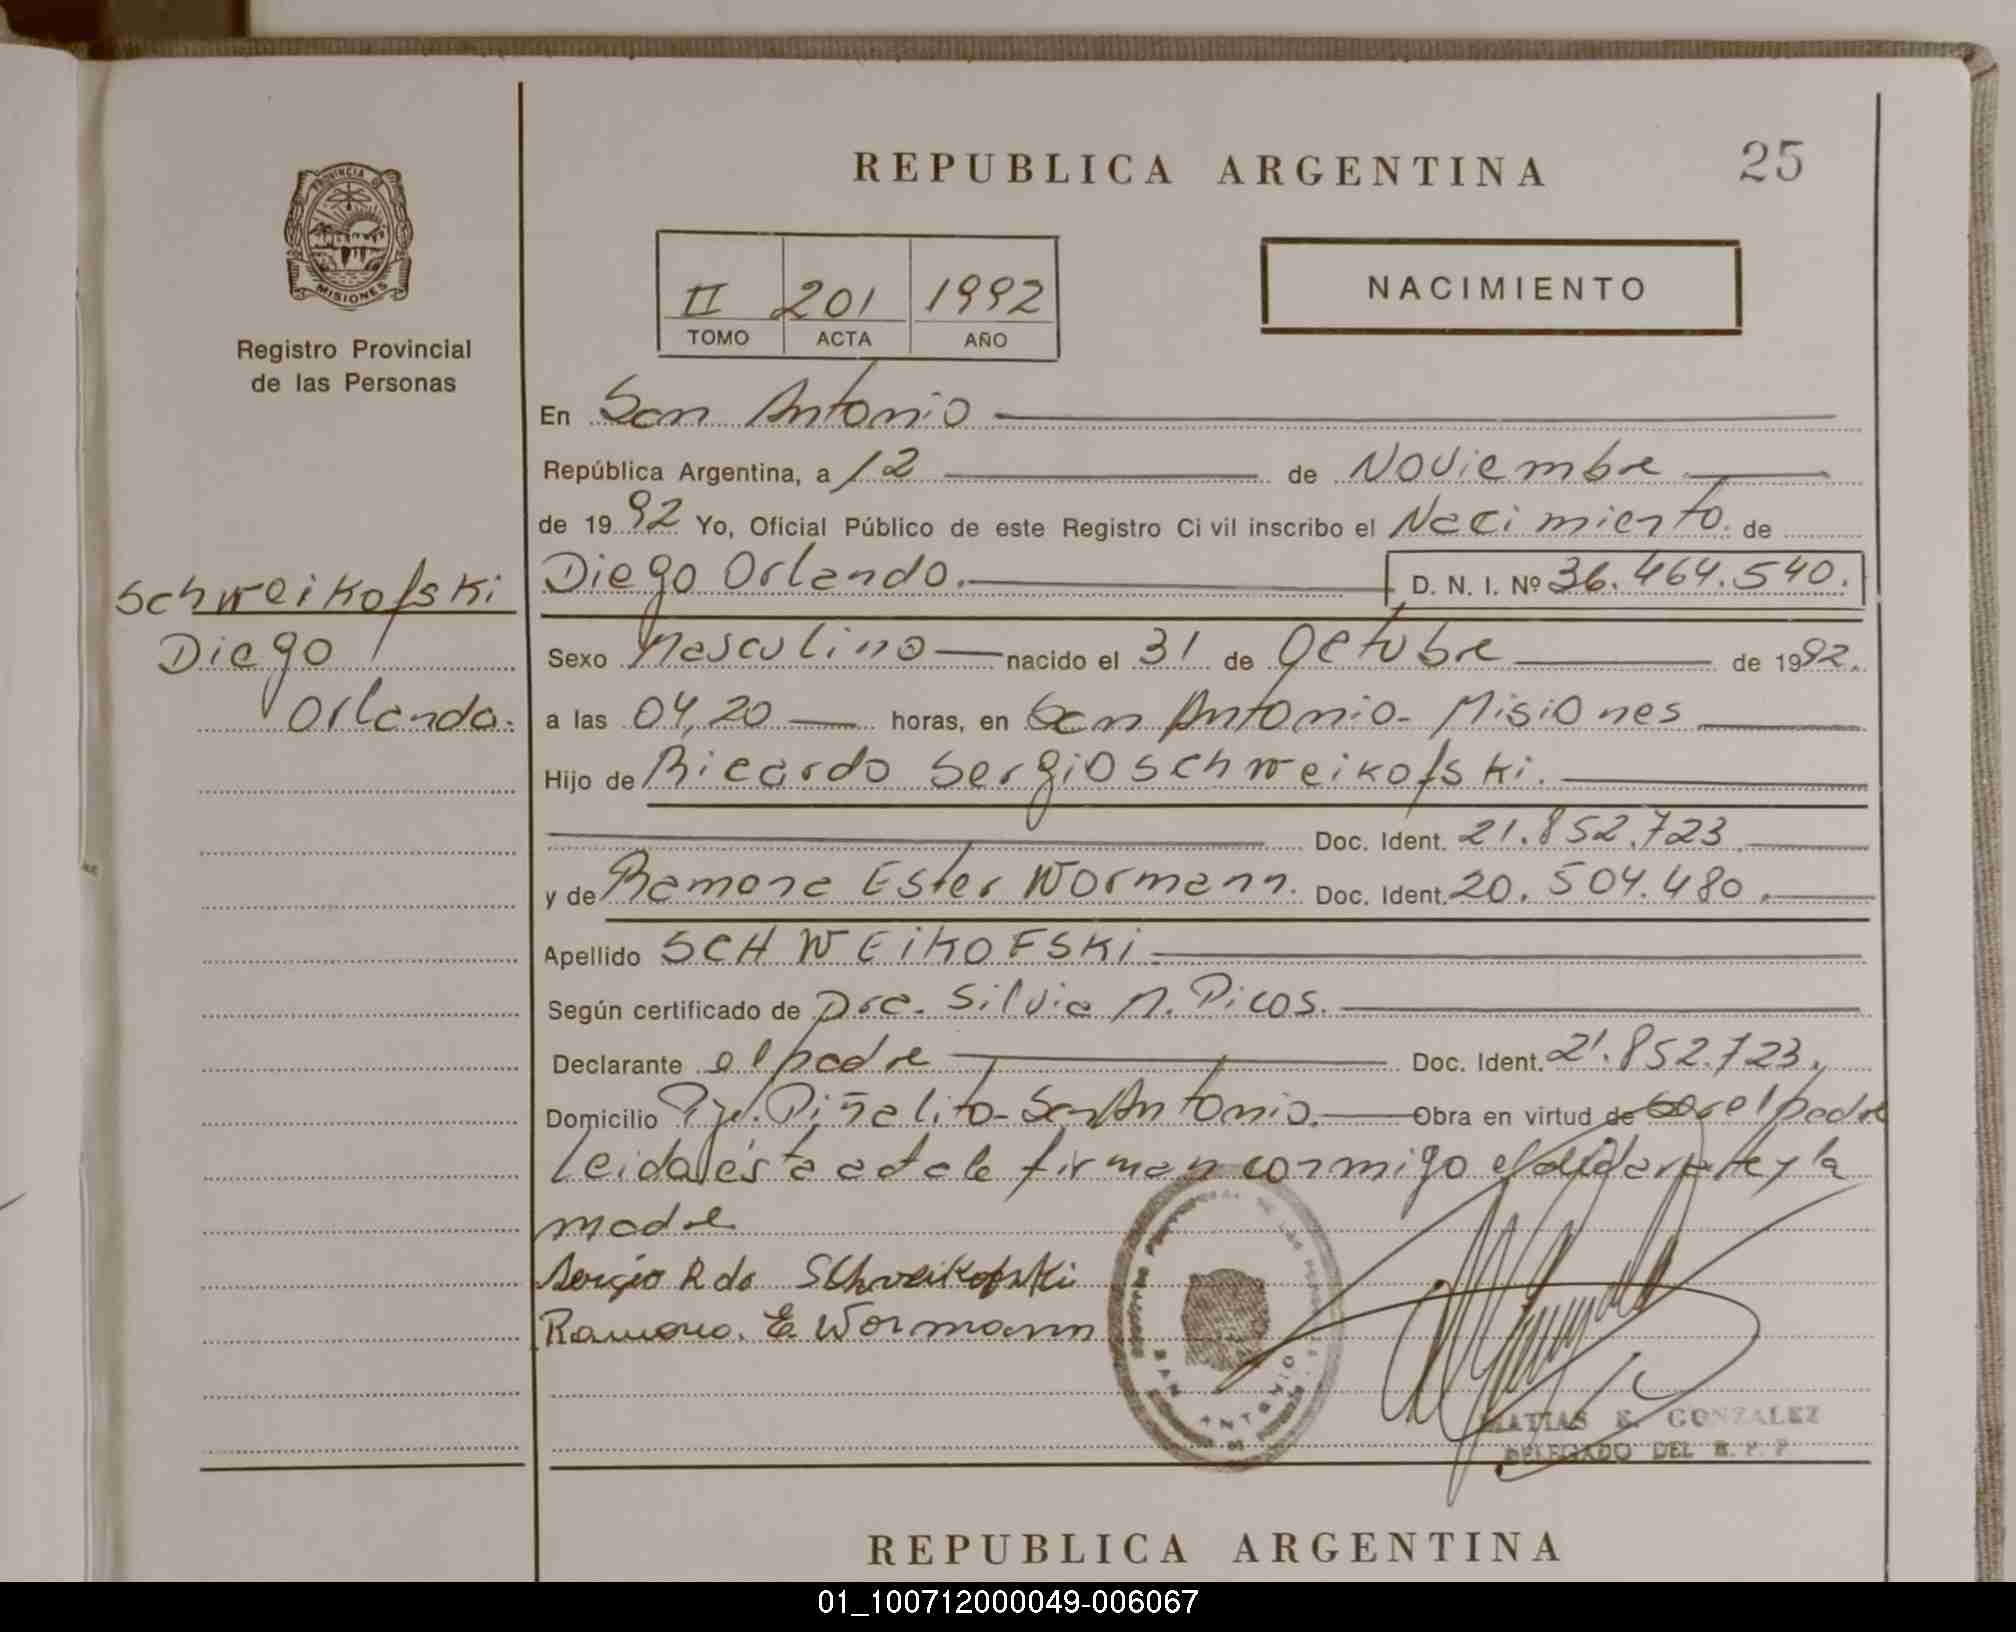 REPUBLICA ARGENTINA
25
PROVINCIA D
MISIONES
Registro Provincial
de las Personas
II 201 1992
TOMO ACTA AÑO
NACIMIENTO
En San Antonio
República Argentina, a 12 de Noviembre
de 1992 Yo, Oficial Público de este Registro Ci vil inscribo el Nacimiento. de
Schweikofski
Diego
Orlando.
Diego Orlando. D. N. I. Nº 36.464.540.
Sexo Masculino nacido el 31 de Octubre de 1992.
a las 04,20 horas, en San Antonio- Misiones
Hijo de Ricardo Sergio Schweikofski.
Doc. Ident. 21.852.723.
y de Ramona Ester Wormann. Doc. Ident. 20.504.480.
Apellido SCHWEIKOFSKI
Según certificado de Dra. Silvia M. Picos.
Declarante el padre Doc. Ident. 21.852.723.
Domicilio Pje. Piñalito-San Antonio. Obra en virtud de ser el padre
Leida ésta acta la firman conmigo el declarante y la
madre
Sergio Rdo Schweikofski
Ramona. E Wormann
SAN ANTONIO
MATIAS E. GONZALEZ
DELEGADO DEL R. P. P
REPUBLICA ARGENTINA
01_100712000049-006067